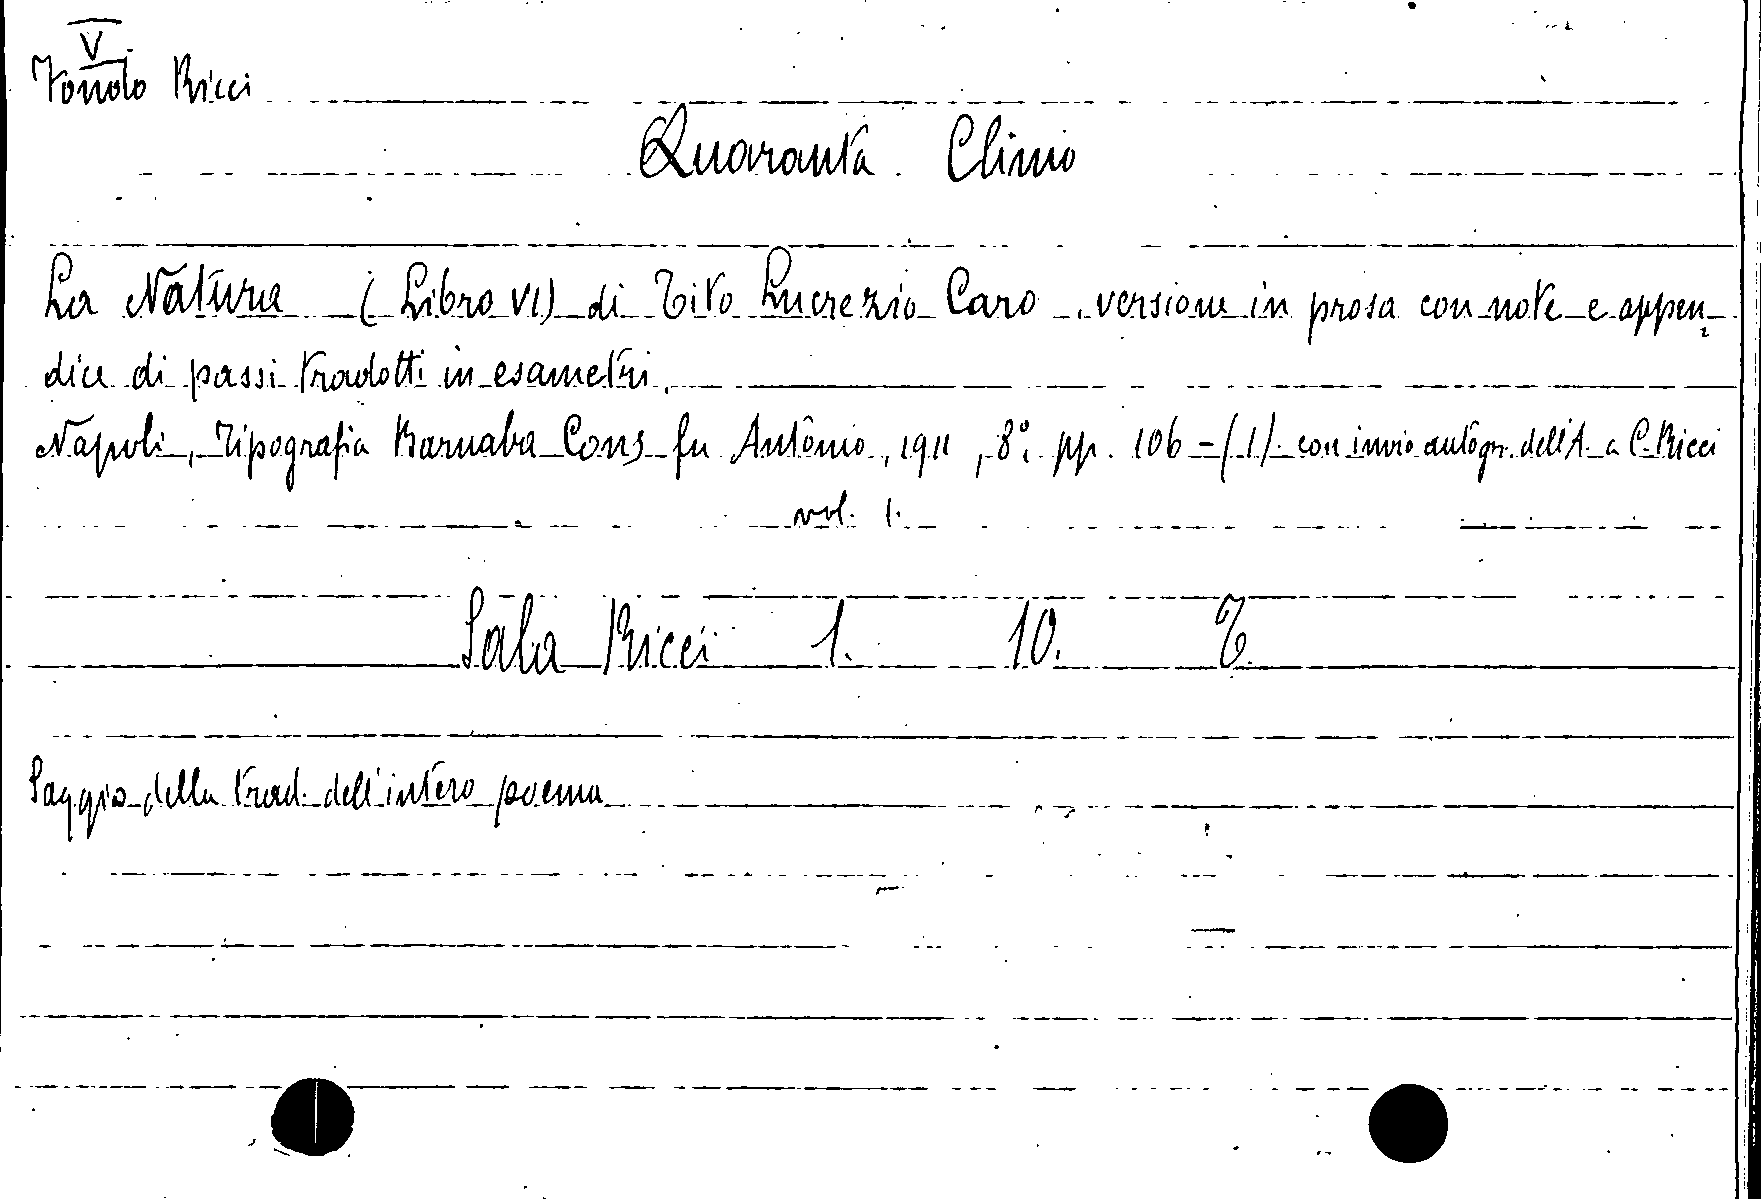 V
Fondo Ricci
Quaranta Clino
La Natura (Libro VI) di Tito Lucrezio Caro, versione in prosa con note e appen-
dice di passi tradotti in esametri.
Napoli, Tipografia Barnaba Cons fu Antonio, 1911, 8°, pp. 106-(1). con invio autogr. dell'A. a C. Ricci
vol. 1.
Sala Ricci 1. 10. T.
Saggio della trad. dell'intero poema